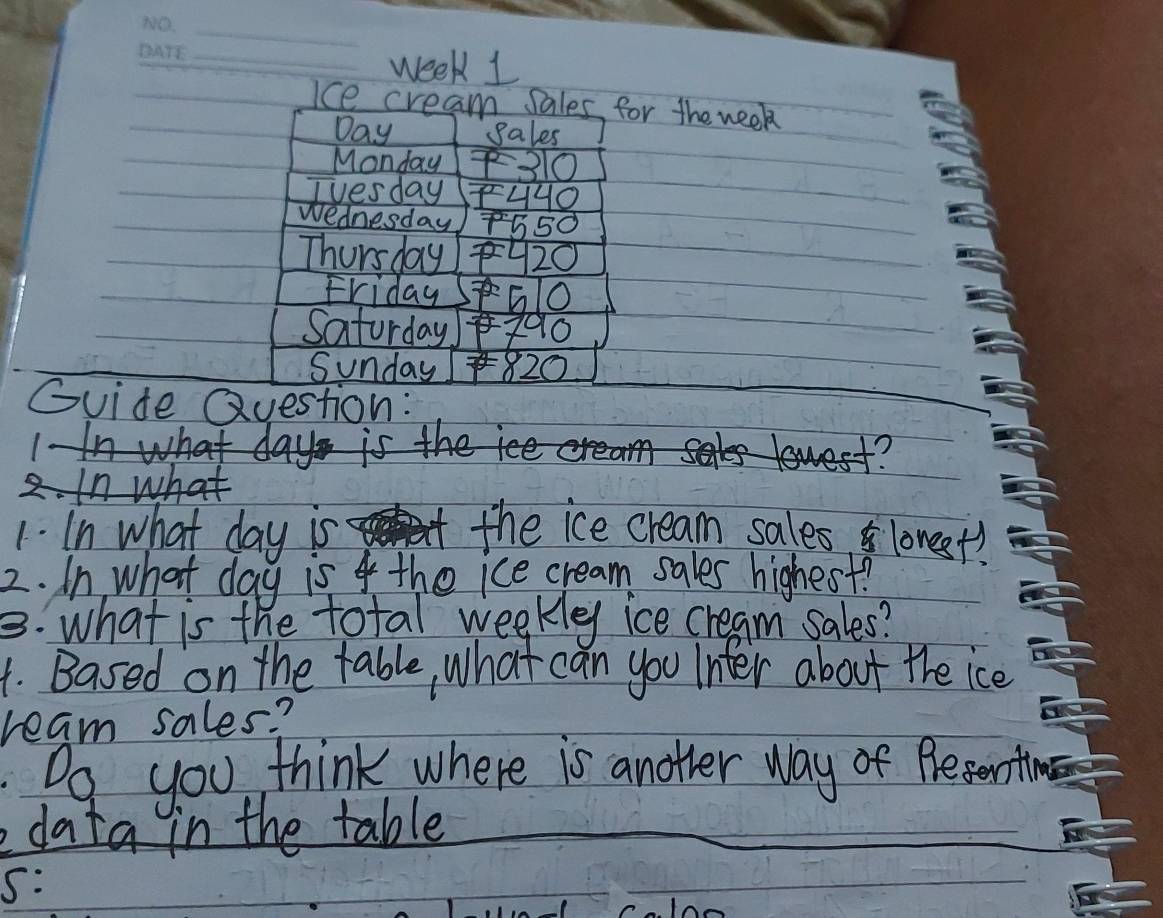 NO.
DATE
Week 1
Ice cream Sales for the week
Day Sales
Monday ₱310
Tuesday ₱440
Wednesday ₱550
Thursday ₱420
Friday ₱510
Saturday ₱790
Sunday ₱820
Guide Question:
1. In what day is the ice cream sales lowest?
2. In what
1. In what day is the ice cream sales lowest?
2. In what day is the ice cream sales highest?
3. What is the total weekley ice cream sales?
. Based on the table, what can you Infer about the ice
ream sales?
. Do you think where is another way of
data in the table
S: